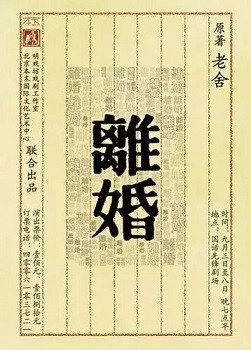 原著 老舍
时间：九月三日至八日 晚七点半
地点：国话先锋剧场
離婚
明戏坊戏剧工作室
北京本末国际文化艺术中心
联合出品
演出票价：壹佰元，壹佰捌拾元
订票电话：四零零六一零三七二一